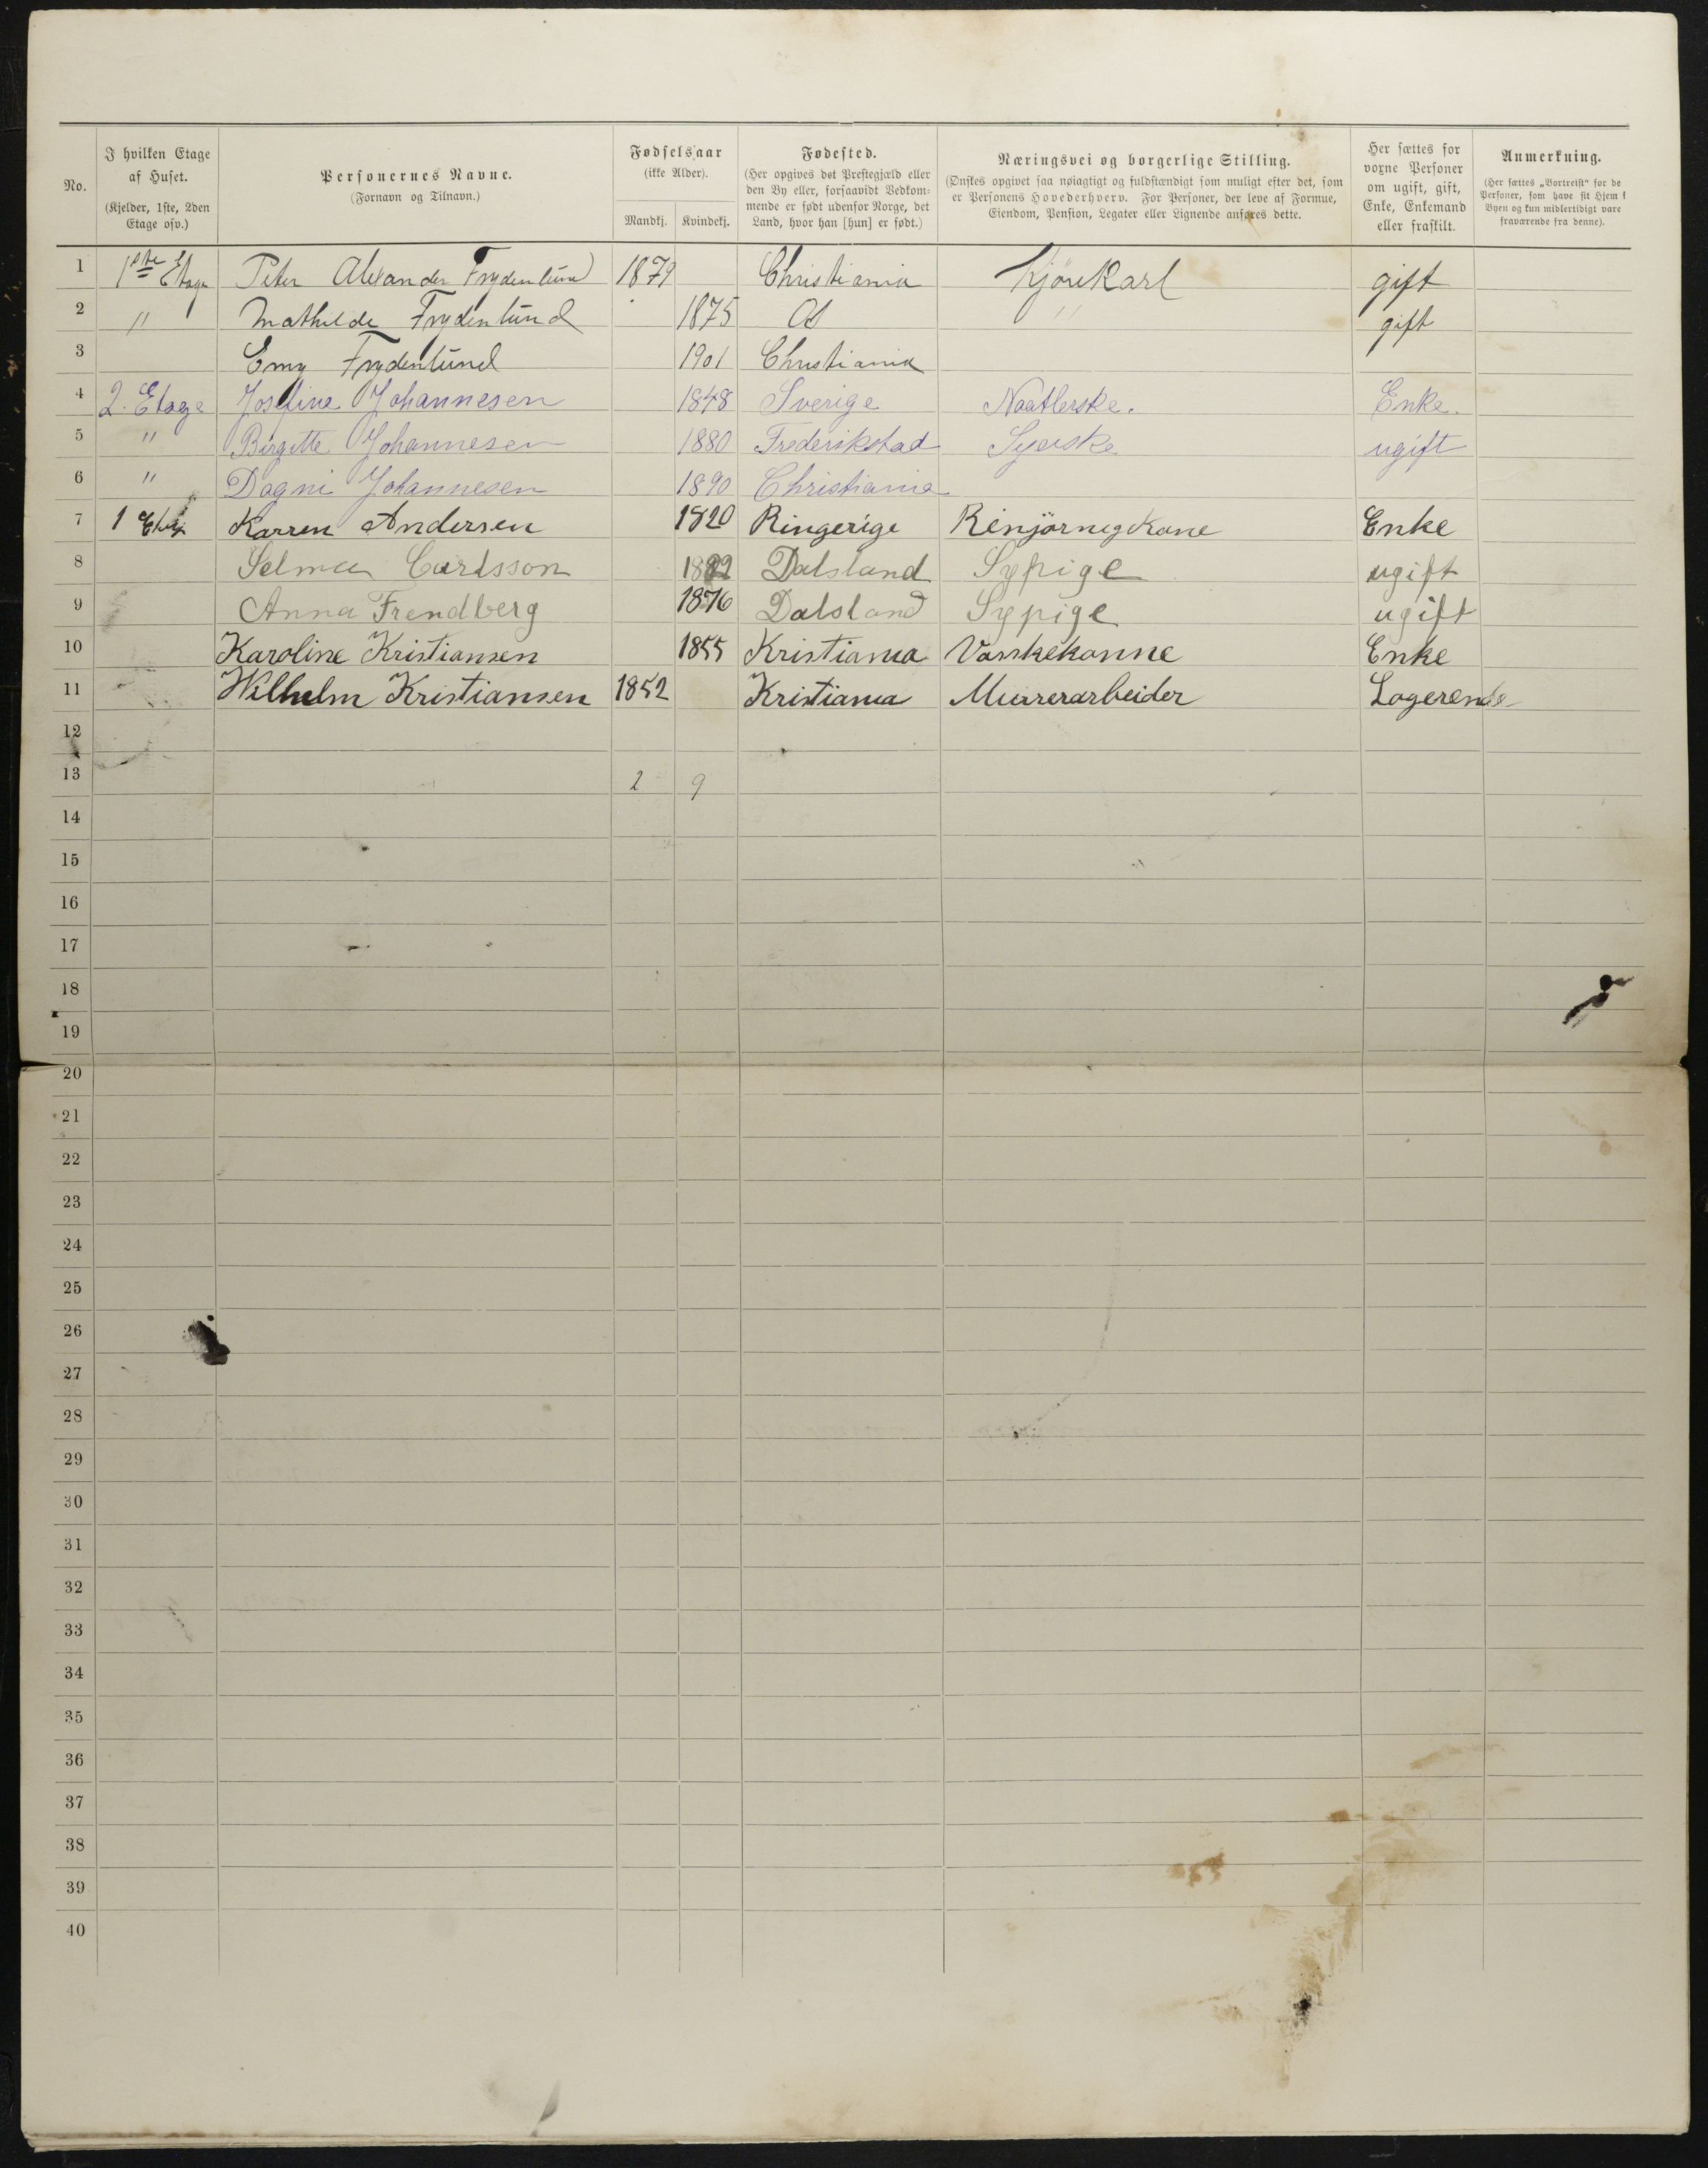 No.
I hvilken Etage af Huset. (Kjelder, 1ste, 2den Etage osv.)
Personernes Navne. (Fornavn og Tilnavn.)
Fødselsaar (ikke Alder).
Mandkj. Kvindekj.
Fødested. (Her opgives det Prestegjæld eller den By eller, forsaavidt Vedkommende er født udenfor Norge, det Land, hvor han [hun] er født.)
Næringsvei og borgerlige Stilling. (Ønskes opgivet saa nøiagtigt og fuldstændigt som muligt efter det, som er Personens Hovederhverv. For Personer, der leve af Formue, Eiendom, Pension, Legater eller Lignende anføres dette.
Her sættes for voxne Personer om ugift, gift, Enke, Enkemand eller fraskilt.
Anmerkning. (Her sættes „Bortreist“ for de Personer, som have sit Hjem i Byen og kun midlertidigt vare fraværende fra denne).
1 1ste Etage Peter Alexander Frydenlund 1879 Christiania Kjørekarl gift
2 " Mathilde Frydenlund 1875 Ås " gift
3 Emy Frydenlund 1901 Christiania
4 2. Etage Josefine Johannesen 1848 Sverige Naatlerske. Enke.
5 " Birgitte Johannesen 1880 Frederikstad Syerske ugift
6 " Dagni Johannesen 1890 Christiania
7 1 Etag Karren Andersen 1820 Ringerige Renjörnegkone Enke
8 Selma Carlsson 1882 Dalsland Sypige ugift
9 Anna Frendberg 1876 Dalsland Sypige ugift
10 Karoline Kristiansen 1855 Kristiania Vaskekonne Enke
11 Wilhelm Kristiansen 1852 Kristiania Murrerarbeider Logerende
12
13 2 9
14
15
16
17
18
19
20
21
22
23
24
25
26
27
28
29
30
31
32
33
34
35
36
37
38
39
40